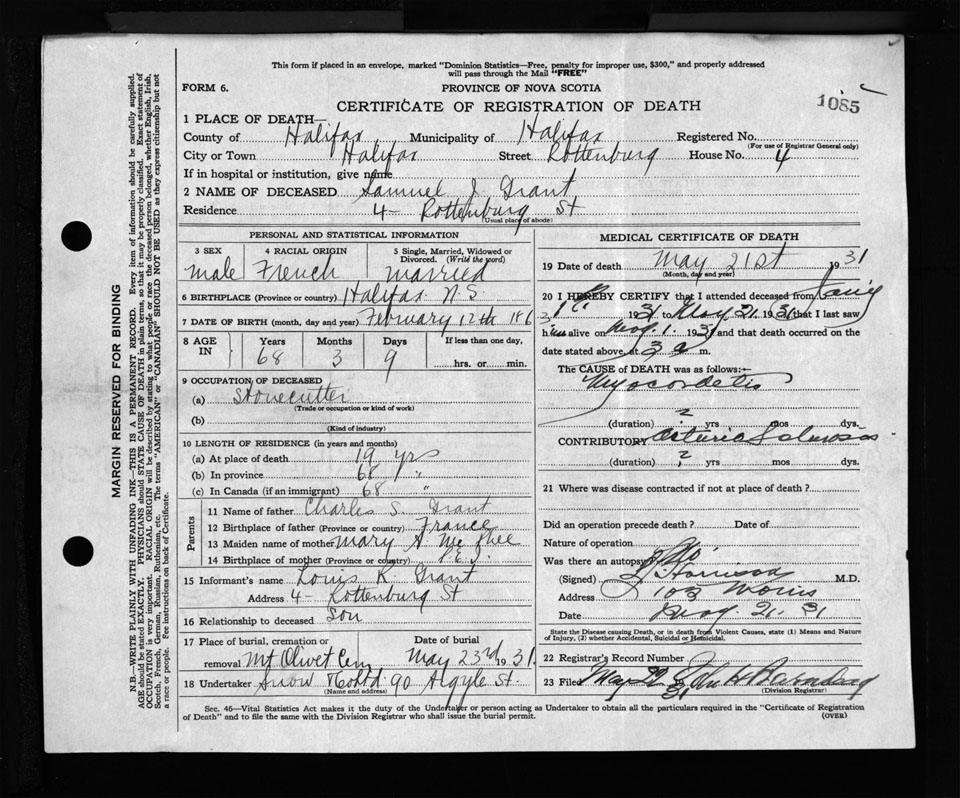 This form if placed in an envelope, marked "Dominion Statistics—Free, penalty for improper use, $300," and properly addressed
will pass through the Mail "FREE"
FORM 6. PROVINCE OF NOVA SCOTIA
CERTIFICATE OF REGISTRATION OF DEATH
1085
1 PLACE OF DEATH—
County of Halifax Municipality of Halifax Registered No.
(For use of Registrar General only)
City or Town Halifax Street Rottenburg House No. 4
If in hospital or institution, give name
2 NAME OF DECEASED Samuel J. Grant
Residence 4 - Rottenburg St
(Usual place of abode)
PERSONAL AND STATISTICAL INFORMATION
3 SEX 4 RACIAL ORIGIN 5 Single, Married, Widowed or
Divorced. (Write the word)
male French married
6 BIRTHPLACE (Province or country) Halifax N.S.
7 DATE OF BIRTH (month, day and year) February 12th 186
8 AGE IN Years Months Days If less than one day,
68 3 9 hrs. or min.
9 OCCUPATION OF DECEASED
(a) Stonecutter
(Trade or occupation or kind of work)
(b)
(Kind of industry)
10 LENGTH OF RESIDENCE (in years and months)
(a) At place of death 19 yrs
(b) In province 68 "
(c) In Canada (if an immigrant) 68 "
Parents
11 Name of father Charles S. Grant
12 Birthplace of father (Province or country) France
13 Maiden name of mother Mary A. McPhee
14 Birthplace of mother (Province or country) P.E.I
15 Informant's name Louis R. Grant
Address 4 - Rottenburg St
16 Relationship to deceased Son
17 Place of burial, cremation or Date of burial
removal Mt Olivet Cem May 23rd 1931.
18 Undertaker Snow & Co Ltd 90 Argyle St.
(Name and address)
MEDICAL CERTIFICATE OF DEATH
19 Date of death May 21st 1931
(Month, day and year)
20 I HEREBY CERTIFY that I attended deceased from
1931 to May 21. 1931 that I last saw
him alive on May 1. 1931 and that death occurred on the
date stated above, at 3 a m.
The CAUSE of DEATH was as follows:—
Myocardetis
(duration) ? yrs mos dys.
CONTRIBUTORY
(duration) ? yrs mos dys.
21 Where was disease contracted if not at place of death?
Did an operation precede death? Date of
Nature of operation
Was there an autopsy? No
(Signed) M.D.
Address 103 Morris
Date May 21. 31
State the Disease causing Death, or in death from Violent Causes, state (1) Means and Nature
of Injury, (2) whether Accidental, Suicidal or Homicidal.
22 Registrar's Record Number
23 Filed May
31
(Division Registrar)
Sec. 46—Vital Statistics Act makes it the duty of the Undertaker or person acting as Undertaker to obtain all the particulars required in the "Certificate of Registration
of Death" and to file the same with the Division Registrar who shall issue the burial permit. (OVER)
MARGIN RESERVED FOR BINDING
N.B.—WRITE PLAINLY WITH UNFADING INK—THIS IS A PERMANENT RECORD. Every item of information should be carefully supplied.
AGE should be stated EXACTLY. PHYSICIANS should STATE CAUSE OF DEATH in plain terms, so that it may be properly classified. Exact statement of
OCCUPATION is very important. RACIAL ORIGIN will be described by stating to what people or race the deceased person belonged, whether English, Irish,
Scotch, French, German, Russian, Ruthenian, etc. The terms "AMERICAN" or "CANADIAN" SHOULD NOT BE USED as they express citizenship but not
a race or people. See instructions on back of Certificate.